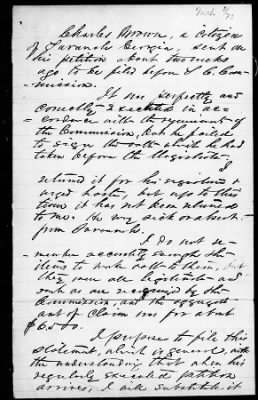 Charles Brown, a Citizen
of Savannah Georgia, sent on
his petition about two weeks
ago to be filed before S C Com-
mission.
It was perfectly and
correctly executed in ac-
cordance with the requirements of
the Commission, but he failed
to sign the oath which he had
taken before the Magistrate.
I
returned it for his signature &
urged haste, but up to this
time it has not been returned
to me. He may sick or absent
from Savannah.
I do not re-
member accurately enough the
items to make oath to them, but
they were all legitimate and
such as are recognized by the
Commission, and the aggregate
amt of claim was for about
$650.
I propose to file this
statement, which is general, with
the understanding that when his
regularly executed petition
arrives, I will substitute it